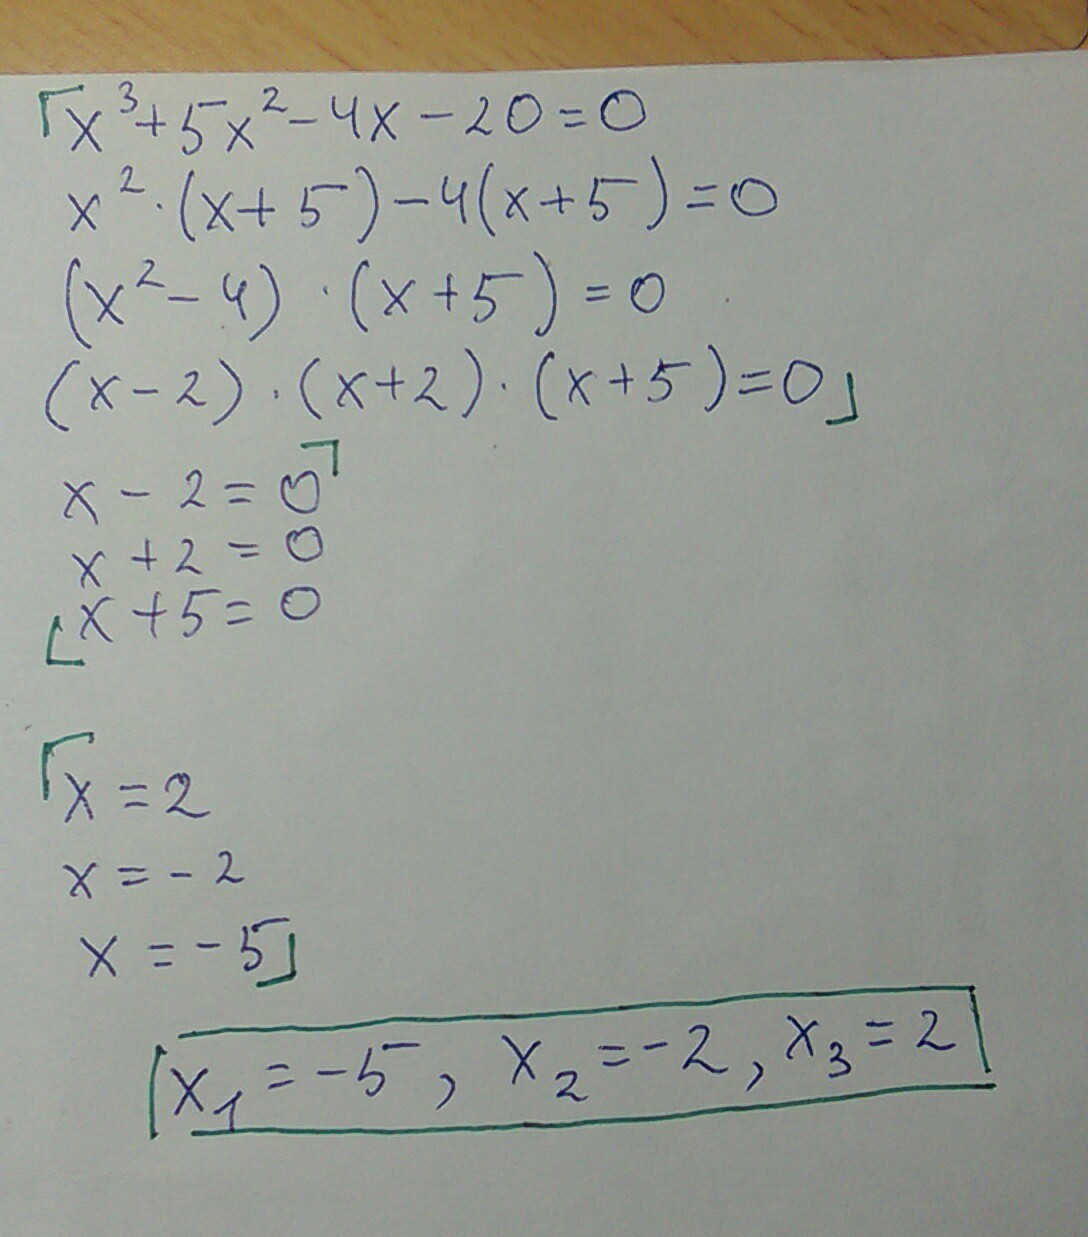 x³+5x²-4x-20=0
x²·(x+5)-4(x+5)=0
(x²-4)·(x+5)=0
(x-2)·(x+2)·(x+5)=0
x-2=0
x+2=0
x+5=0
x=2
x=-2
x=-5
x₁=-5, x₂=-2, x₃=2